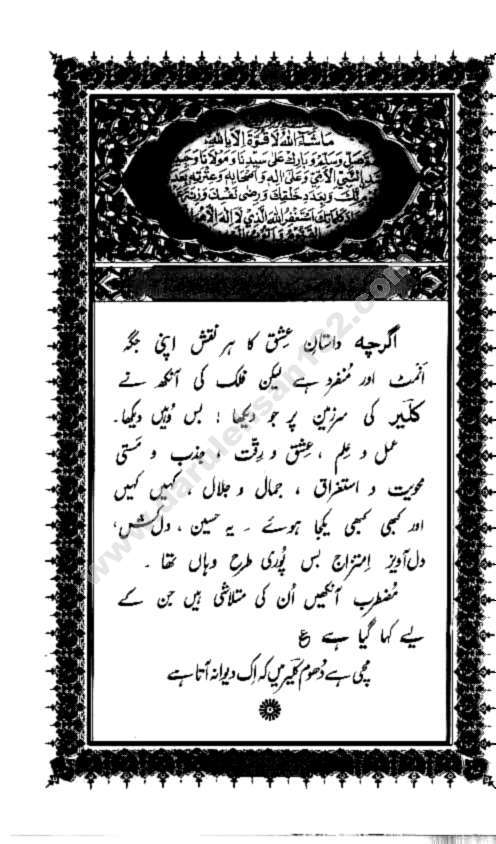 ماشاء الله لا قوة الا بالله
صل وسلم وبارك على سيدنا ومولانا
النبي الامي وعلى اله واصحابه وعترته بعدد
وبعدد خلقك ورضى نفسك وزنة
استغفر الله الذي لا اله الا
اگرچہ داستانِ عِشق کا ہر نقش اپنی جگہ
اَنمٹ اور مُنفرد ہے لیکن فلک کی آنکھ نے
کلیَر کی سرزمین پر جو دیکھا ؛ بس وُہیں دیکھا۔
عمل و عِلم ، عِشق و رِقّت ، جذب و مَستی
محویت و استغراق ، جمال و جلال ، کہیں کہیں
اور کبھی کبھی یکجا ہوئے ۔ یہ حسین ، دل کش،
دل آویز اِمتزاج بس پُوری طرح وہاں تھا ۔
مُضطرب آنکھیں اُن کی متلاشی ہیں جن کے
لیے کہا گیا ہے ع
مچی ہے دُھوم کلیَر میں کہ اِک دیوانہ آتا ہے
www.darulehsan112.com